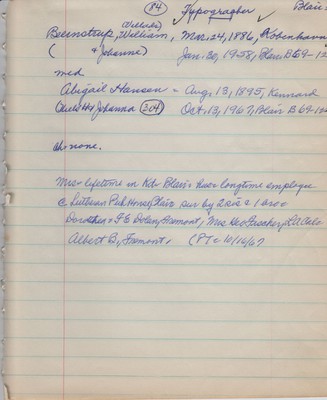 84 Typographer ✓ Blair
Wilhelm
Bernstrup, William, Mar. 24, 1886, Kobenhavn
( & Johanne) Jan. 30, 1958, Blair B69-12
med
Abigail Hansen - Aug. 13, 1895, Kennard
Johanna 304 Oct. 13, 1967, Blair B 69-12
ch none.
Mrs lifetime in Blair's hus longtime employee
c Lutheran Pub House, Blair sur by 2 sis & 1 bro
Dorothea = F E Dolan, Fremont, Mrs Geo
Albert B, Fremont, (PT = 10/16/67